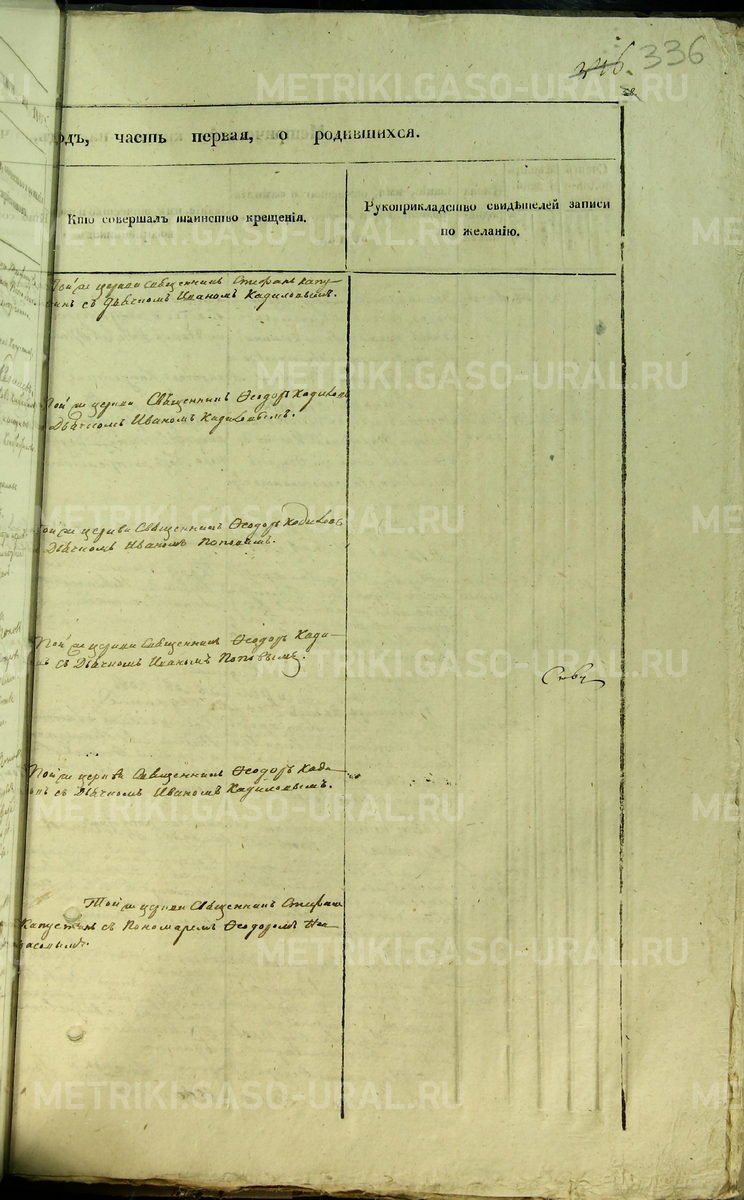 336
одъ, часть первая, о родившихся.
Кто совершалъ таинство крещенія.
Рукоприкладство свидѣтелей записи
по желанію.
Той же церкви Священникъ Стефанъ Капу-
инъ съ Дьячкомъ Иваномъ Кадиловымъ.
Той же церкви Священникъ Ѳеодоръ Кадиловъ
Дьячкомъ Иваномъ Кадиловымъ.
Той же церкви Священникъ Ѳеодоръ Кадиловъ
Дьячкомъ Иваномъ Поповымъ.
Той же церкви Священникъ Ѳеодоръ Кади-
съ Дьячкомъ Иваномъ Поповымъ.
Той же церкви Священникъ Ѳеодоръ Кади-
овъ съ Дьячкомъ Иваномъ Кадиловымъ.
Той же церкви Священникъ Стефанъ
Капустинъ съ Пономаремъ Ѳеодоромъ
METRIKI.GASO-URAL.RU
METRIKI.GASO-URAL.RU
METRIKI.GASO-URAL.RU
METRIKI.GASO-URAL.RU
METRIKI.GASO-URAL.RU
METRIKI.GASO-URAL.RU
METRIKI.GASO-URAL.RU
METRIKI.GASO-URAL.RU